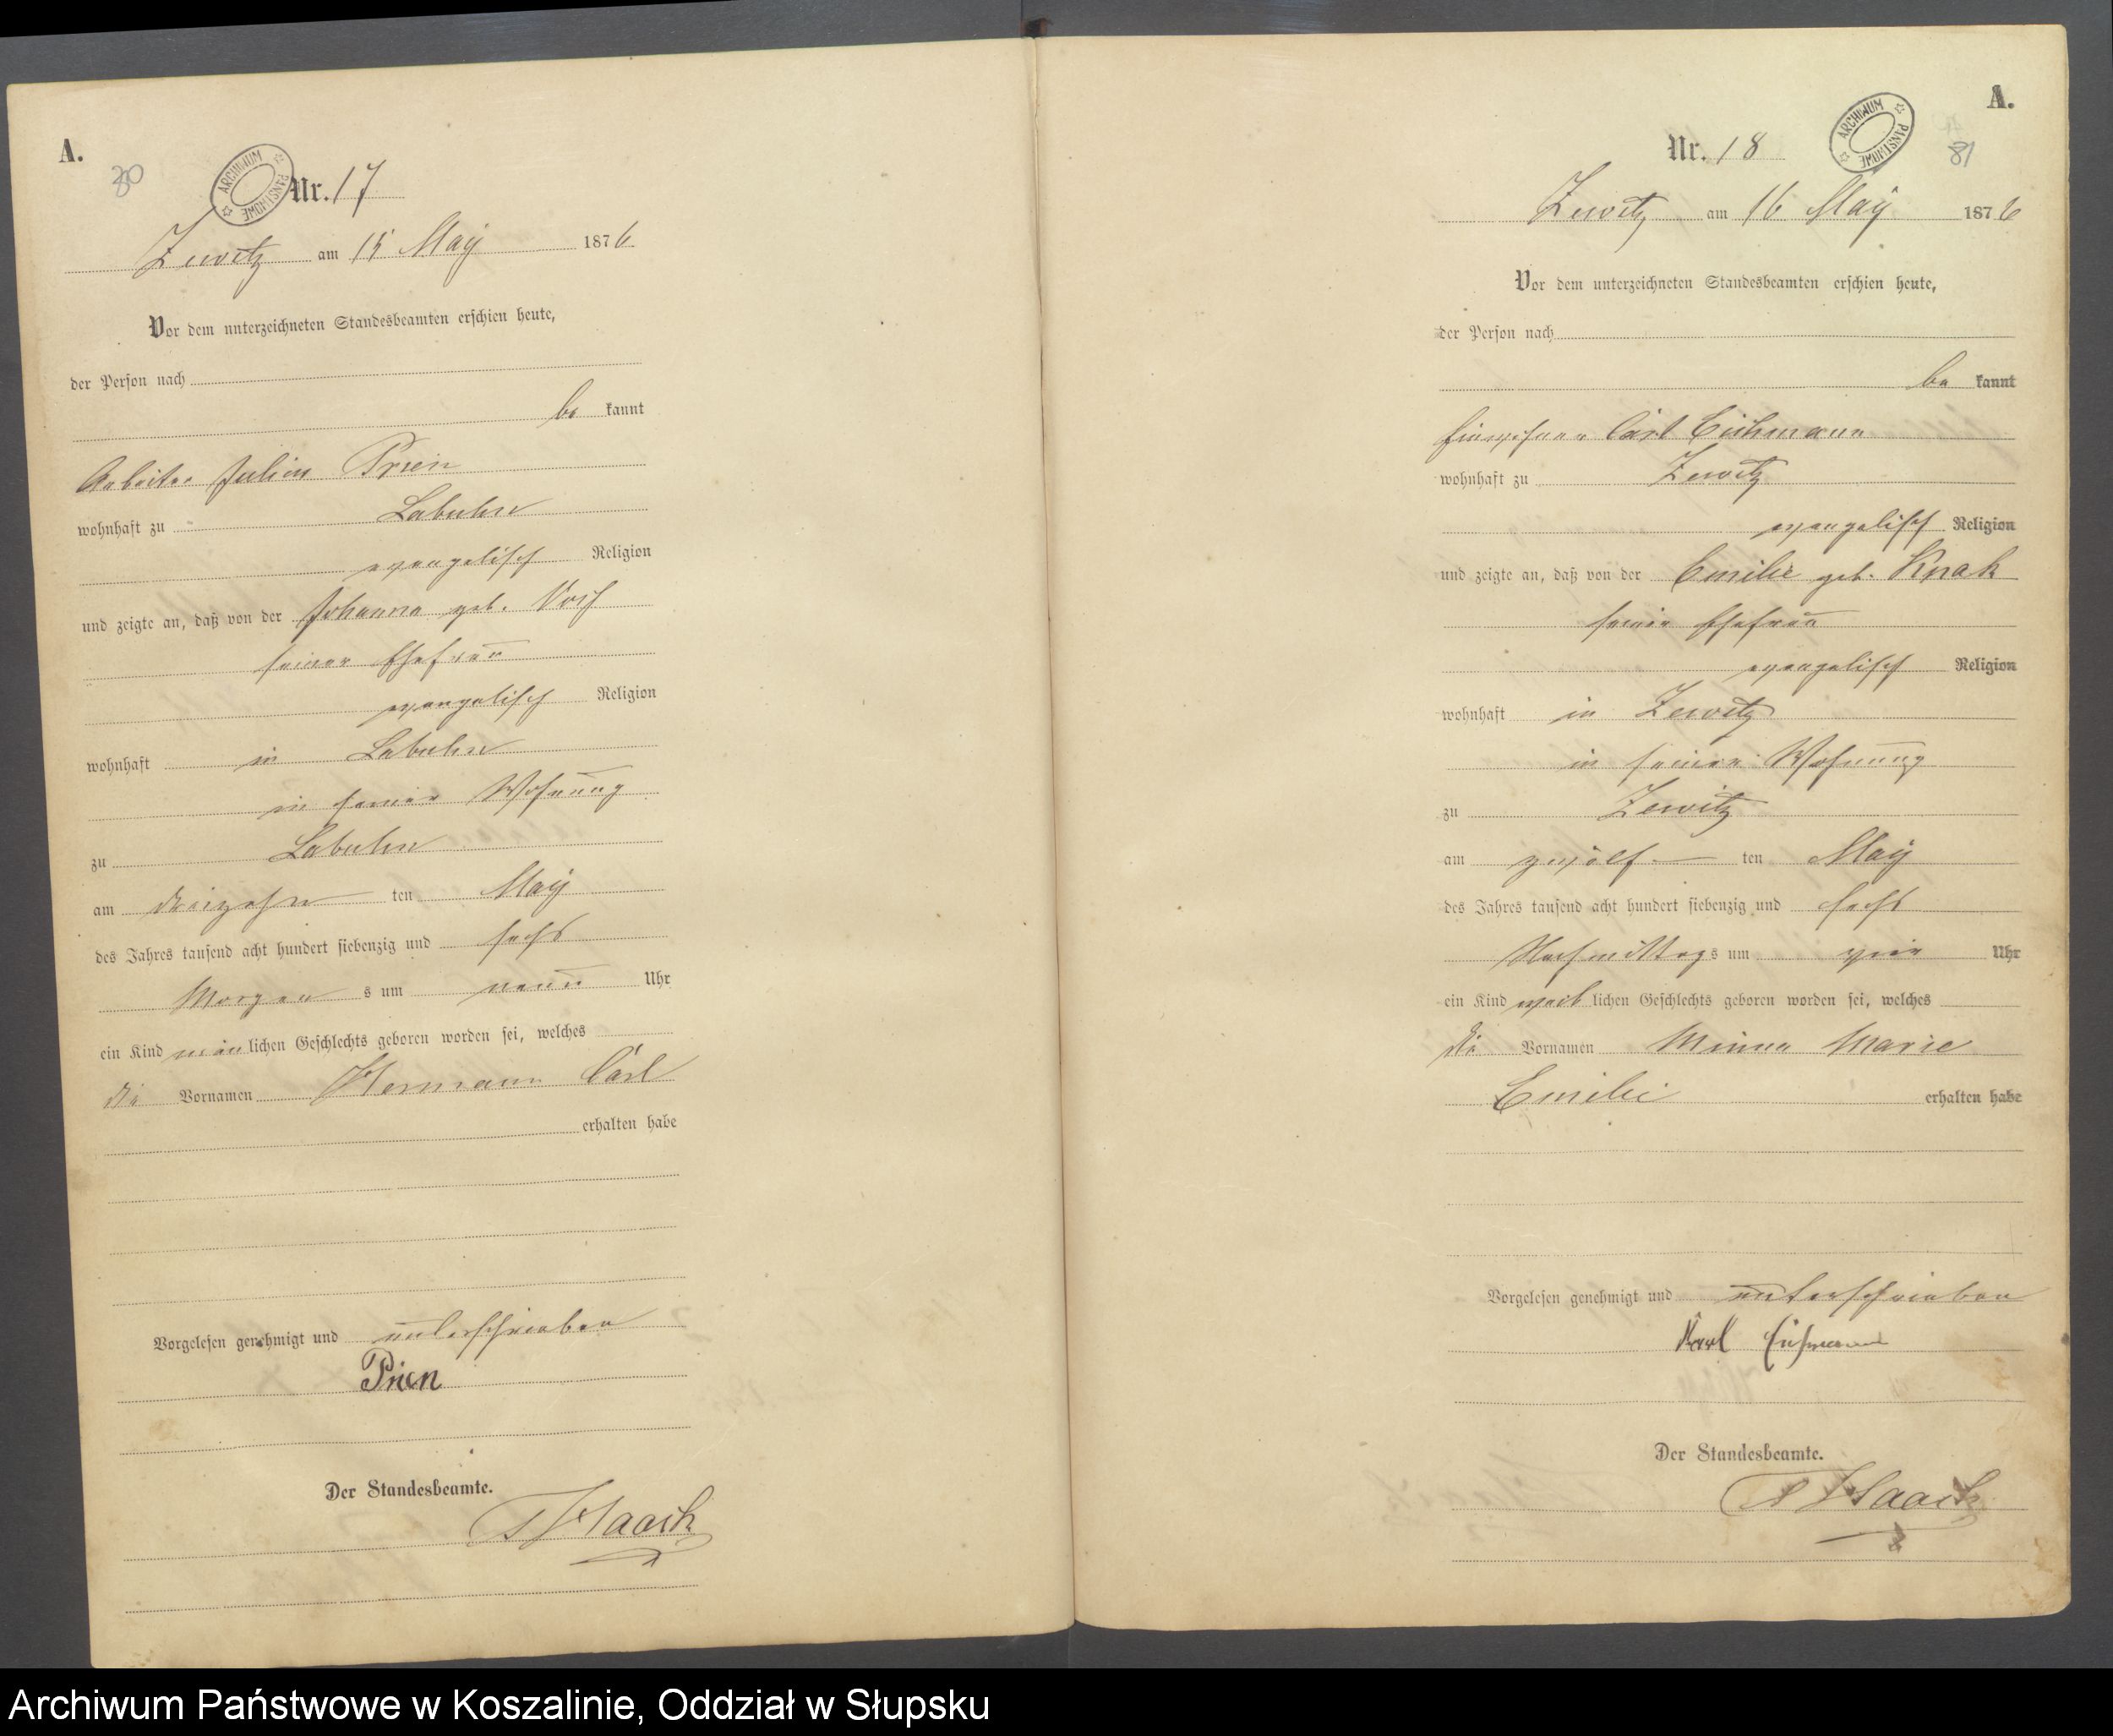 A.
80
ARCHIWUM PAŃSTWOWE
Nr. 17
Zewitz am 15 May 1876
Vor dem unterzeichneten Standesbeamten erschien heute,
der Person nach
be kannt
Arbeiter Julius Prien
wohnhaft zu Labuhn
evangelisch Religion
und zeigte an, daß von der Johanna geb.
seiner Ehefrau
evangelisch Religion
wohnhaft in Labuhn
in seiner Wohnung
zu Labuhn
am dreizehn ten May
des Jahres tausend acht hundert siebenzig und sechs
Morgen s um neun Uhr
ein Kind män lichen Geschlechts geboren worden sei, welches
die Vornamen Hermann Carl
erhalten habe
Vorgelesen genehmigt und unterschrieben
Prien
Der Standesbeamte.
Haack
A.
81
ARCHIWUM PAŃSTWOWE
Nr. 18
Zewitz am 16 May 1876
Vor dem unterzeichneten Standesbeamten erschien heute,
der Person nach
be kannt
Einwohner Carl Eichmann
wohnhaft zu Zewitz
evangelisch Religion
und zeigte an, daß von der Emilie geb. Knak
seiner Ehefrau
evangelisch Religion
wohnhaft in Zewitz
in seiner Wohnung
zu Zewitz
am zwölf ten May
des Jahres tausend acht hundert siebenzig und sechs
Nachmittags um vier Uhr
ein Kind weib lichen Geschlechts geboren worden sei, welches
die Vornamen Minna Marie
Emilie erhalten habe
Vorgelesen genehmigt und unterschrieben
Karl Eichmann
Der Standesbeamte.
Haack
Archiwum Państwowe w Koszalinie, Oddział w Słupsku